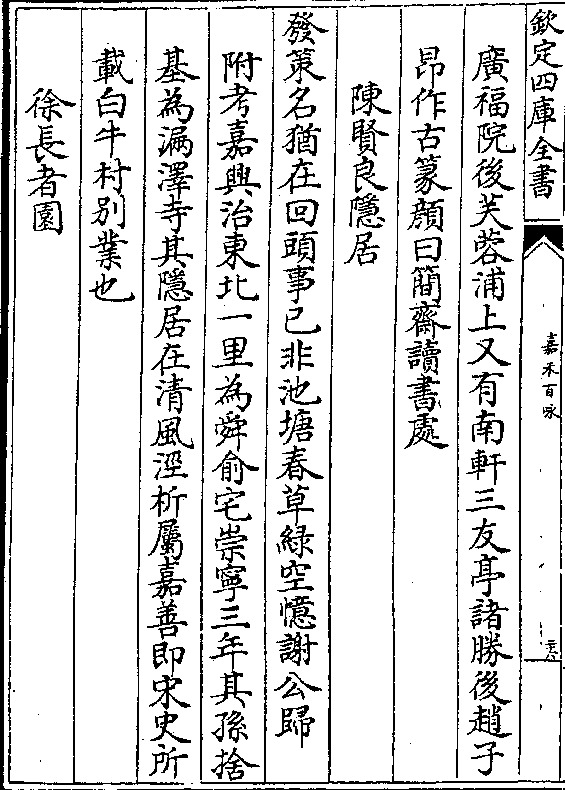 欽定四庫全書
嘉禾百咏
廣福院後芙蓉浦上又有南軒三友亭諸勝後趙子
昂作古篆顔曰簡齋讀書處
陳賢良隱居
發策名猶在回頭事已非池塘春草緑空憶謝公歸
附考嘉興治東北一里為舜俞宅崇寧三年其孫捨
基為漏澤寺其隱居在清風涇析屬嘉善即宋史所
載白牛村别業也
徐長者園